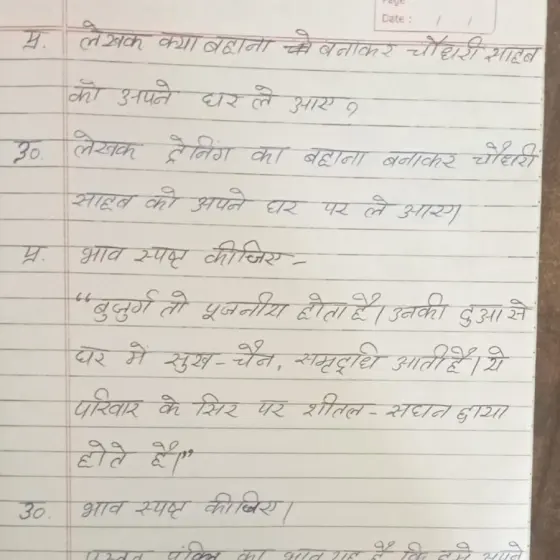 Page
Date : / /
प्र. लेखक क्या बहाना बनाकर चौधरी साहब
को अपने घर ले आए ?
उ०. लेखक ट्रेनिंग का बहाना बनाकर चौधरी
साहब को अपने घर पर ले आए।
प्र. भाव स्पष्ट कीजिए –
“बुजुर्ग तो पूजनीय होता है। उनकी दुआ से
घर में सुख-चैन, समृद्धि आती है। ये
परिवार के सिर पर शीतल-सघन छाया
होते है।”
उ०. भाव स्पष्ट कीजिए।
प्रस्तुत पंक्ति का भाव यह है कि हमे अपने